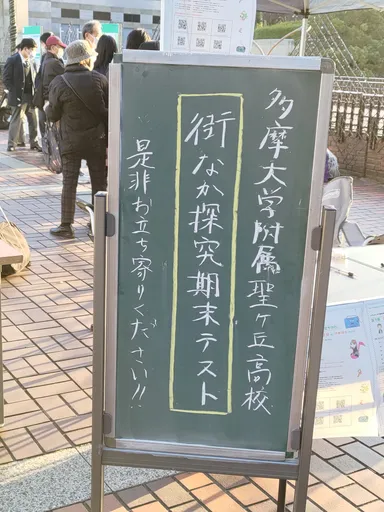 多摩大学附属聖ヶ丘高校
街なか探究期末テスト
是非お立ち寄りください!!